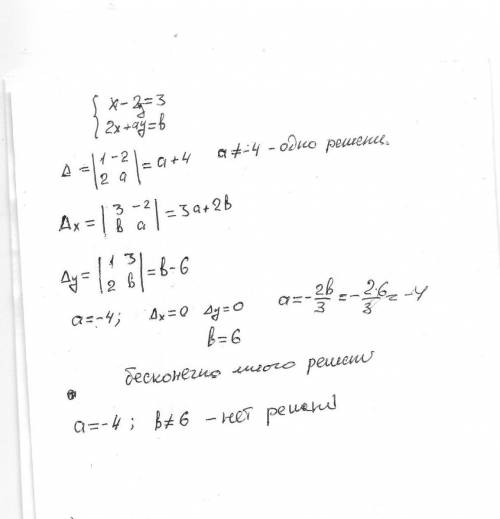 { x-2y=3
2x+ay=b
Δ = |1 -2; 2 a| = a+4 a≠-4 - одно решени.
Δx = |3 -2; b a| = 3a+2b
Δy = |1 3; 2 b| = b-6
a=-4; Δx=0 Δy=0 a=-2b/3=-2·6/3=-4
b=6
бесконечно много решен
a=-4; b≠6 - нет решени